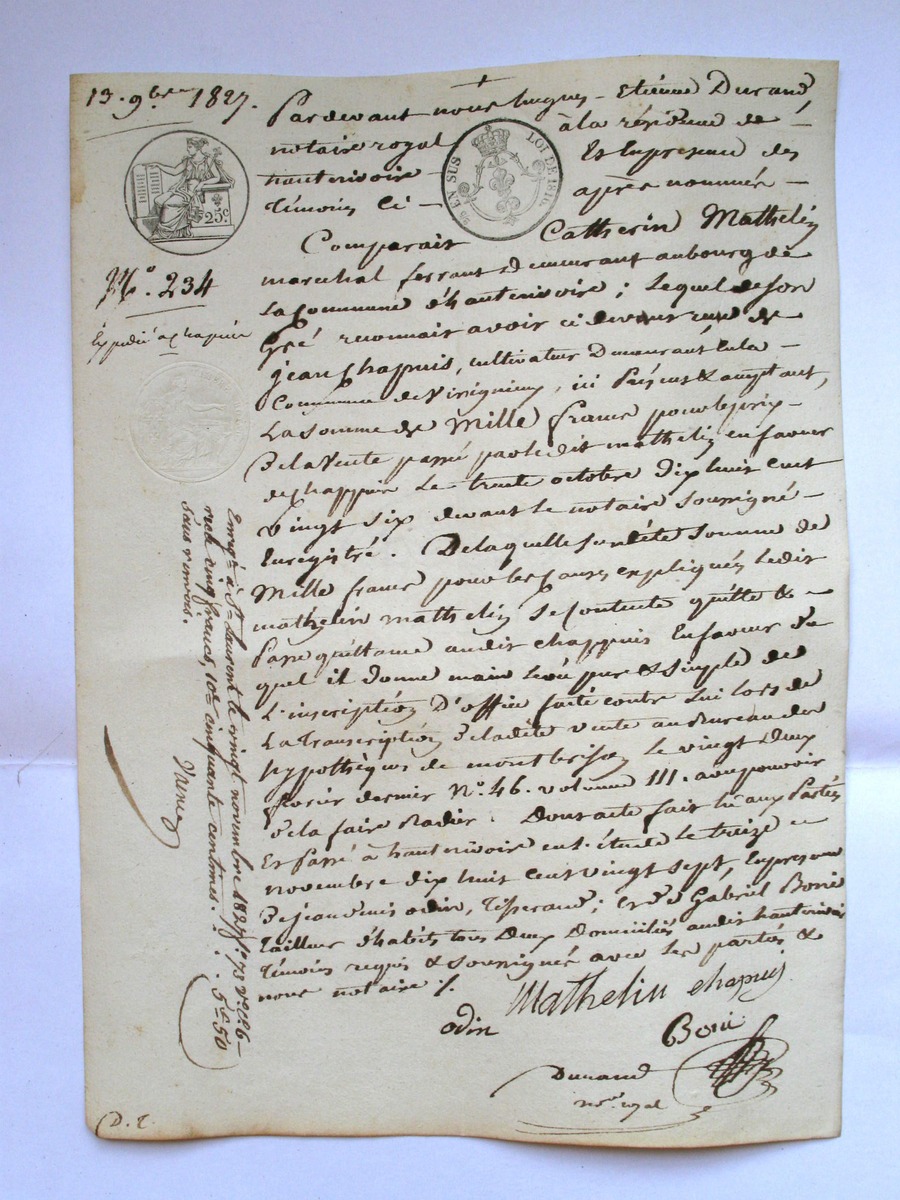 13. 9bre 1827.
Pardevant nous hugues - Etienne Durand,
notaire royal à la résidence de -
hauterivoire - Et En presence des
témoins ci - après nommés -
25c
EN SUS LOI DE 1816.
Comparait Catherin Mathelin
marechal ferrant Demeurant au bourg de
La Commune d'hauterivoire ; Lequel de son
Gré reconnait avoir ci devant reçu de
jean Chapuis, cultivateur Demeurant En la -
Commune de Virigneux, ici Présent & acceptant,
La Somme de Mille francs pour le prix -
De la Vente passé par le dit mathelin en faveur
de chappuis Le trente octobre Dix huit cent
Vingt six devant le notaire soussigné -
Enregistré. De laquelle susdite Somme de
Mille francs pour les causes expliqués Ledit
mathelin Se Contente quitte & -
Passe quittance audit chappuis En faveur du
quel il donne main Levée pure & simple de
L'inscription D'office faite contre Lui Lors de
La transcription De ladite vente au Bureau des
hypothèques de montbrison Le vingt Deux
fevrier dernier No. 46. volume 111. avec pouvoir
De la faire Radier. Dont acte fait Lu aux Parties
Et Passé à hauterivoire en l'étude Le treize -
novembre dix huit cent vingt sept, En presence
De jean Denis odin, Tisserand ; Et de Gabriel Bonie
Tailleur d'habits tous Deux Domiciliés audit hauterivoire
Témoins requis & soussignés avec Les parties &
nous notaire ./.
Mathelin chapuis
odin
Bonie
Durand
nre royal
No. 234
Expédié a chapuis
Enregté à St Laurent le vingt novembre 1827 fo 78 vo Ce 6 -
reçu cinq francs, 10e cinquante centimes. . . . 5f 50
sans renvois.
D. E.